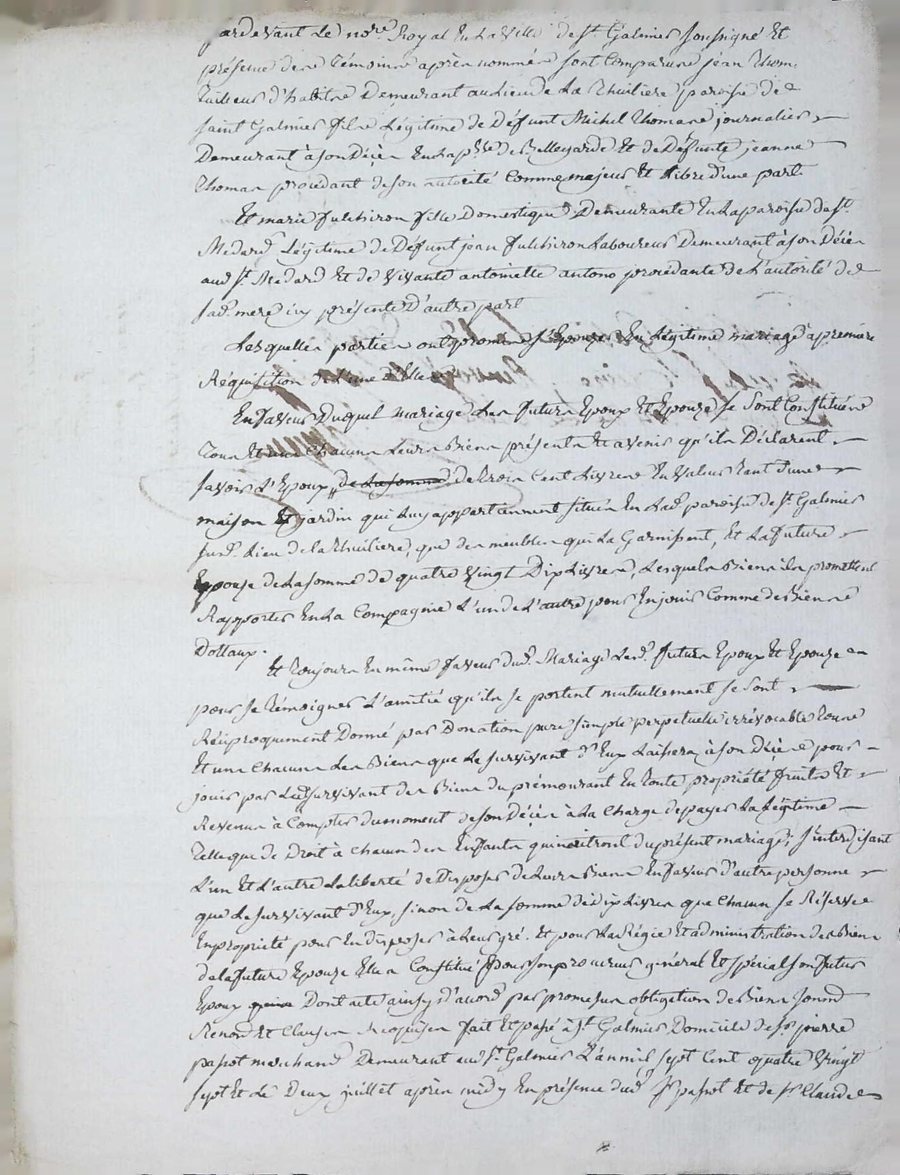 pardevant Le no.re Royal En La ville de St Galmier soussigné Et
présence des Témoins après nommés sont Comparus jean Thom.
Tuilieur d'habitre Demeurant au Lieu de La Thuiliere paroisse de
saint Galmier fils Légitime de Défunt Michel Thomas journalier
Demeurant à son Décès En La p.sse de Bellegarde Et de Défunte jeanne
Thomas procédant de son autorité Comme majeur Et Libre d'une part
Et marie fulchiron fille Domestique Demeurante En La paroisse de St
Medard Légitime de Défunt jean fulchiron Laboureur Demeurant à son Décès
aud. St Medard Et de vivante antoinette antono procédante de L'autorité de
sad. mere icy présente D'autre part
Lesquelles parties ont promis s'Epouzer En Légitime mariage à premiere
Réquisition de L'une d'Elles
En faveur Duquel mariage Les futurs Epoux Et Epouze se sont Constitués
Tous Et uns Chacuns Leurs Biens présents Et avenir qu'ils Déclarent
savoir L'Epoux de La somme de Trois Cent Livres En valeur Tant d'une
maison Et jardin qui Luy appartiennent situés En Lad. paroisse de St Galmier
sud. Lieu de la Thuiliere, que des meubles qui La Garnissent, Et La future
Epouse de La somme de quatre vingt Dix Livres, Lesquels Biens ils promettent
Rapporter En La Compagnie L'un de L'autre pour En jouir Comme de Biens
Dottaux.
Et Toujours En même faveur dud. Mariage Lesd. futurs Epoux Et Epouze
pour se Témoigner L'amitié qu'ils se portent mutuellement se sont
Réciproquement Donné par Donation pure simple perpetuelle irrévocable Tous
Et uns Chacuns Les Biens que Le survivant d'Eux Laissera à son Décès pour
jouir par Led. survivant des Biens du prémourant En Toute propriété fruits Et
Revenus à Compter du moment de son Décès à La Charge de payer La Légitime
Telle que de Droit à Chacun des Enfants qui naitront du présent mariage, s'interdisant
L'un Et L'autre La liberté de Disposer de Leurs Biens En faveur d'autre personne
que Le survivant d'Eux, sinon de La somme de dix Livres que Chacun se Réserve
En propriété pour En disposer à Leur gré. Et pour La Régie Et administration des Biens
de la future Epouze Elle a Constitué pour son procureur général Et spécial son futur
Epoux Dont acte ainsy d'accord par promesses obligation de Biens soumd
Renond Et Clauses Requises fait Et passé à St Galmier Domicile de Sr pierre
passot marchand Demeurant aud. St Galmier L'an mil sept Cent quatre vingt
sept Et Le Deux juillet après midy En présence dud. Sr passot Et de Sr Claude